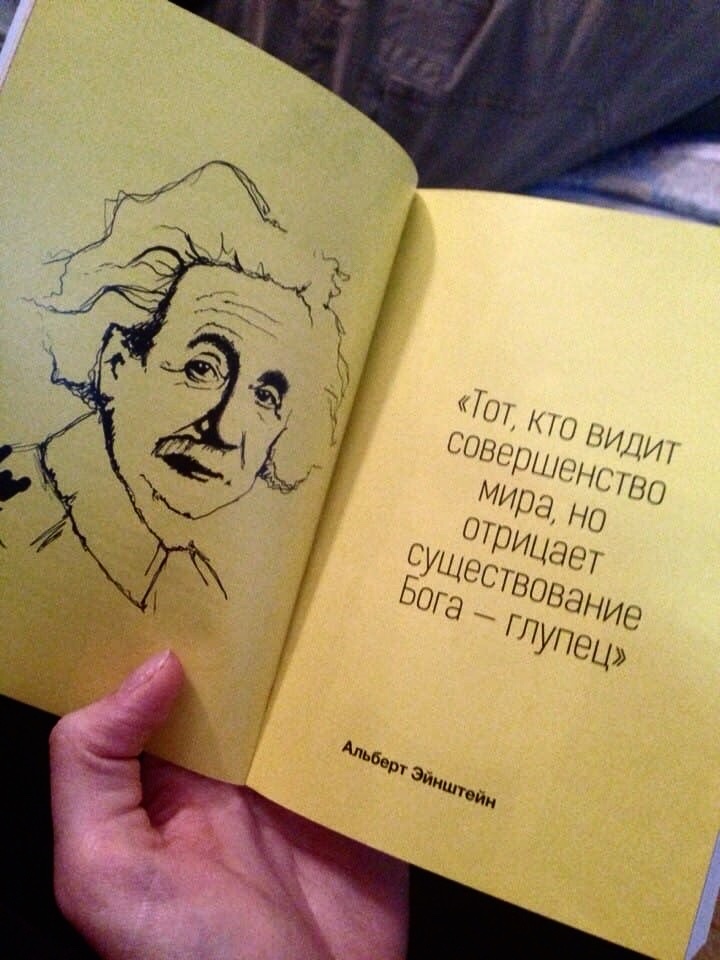 «Тот, кто видит
совершенство
мира, но
отрицает
существование
Бога — глупец»
Альберт Эйнштейн